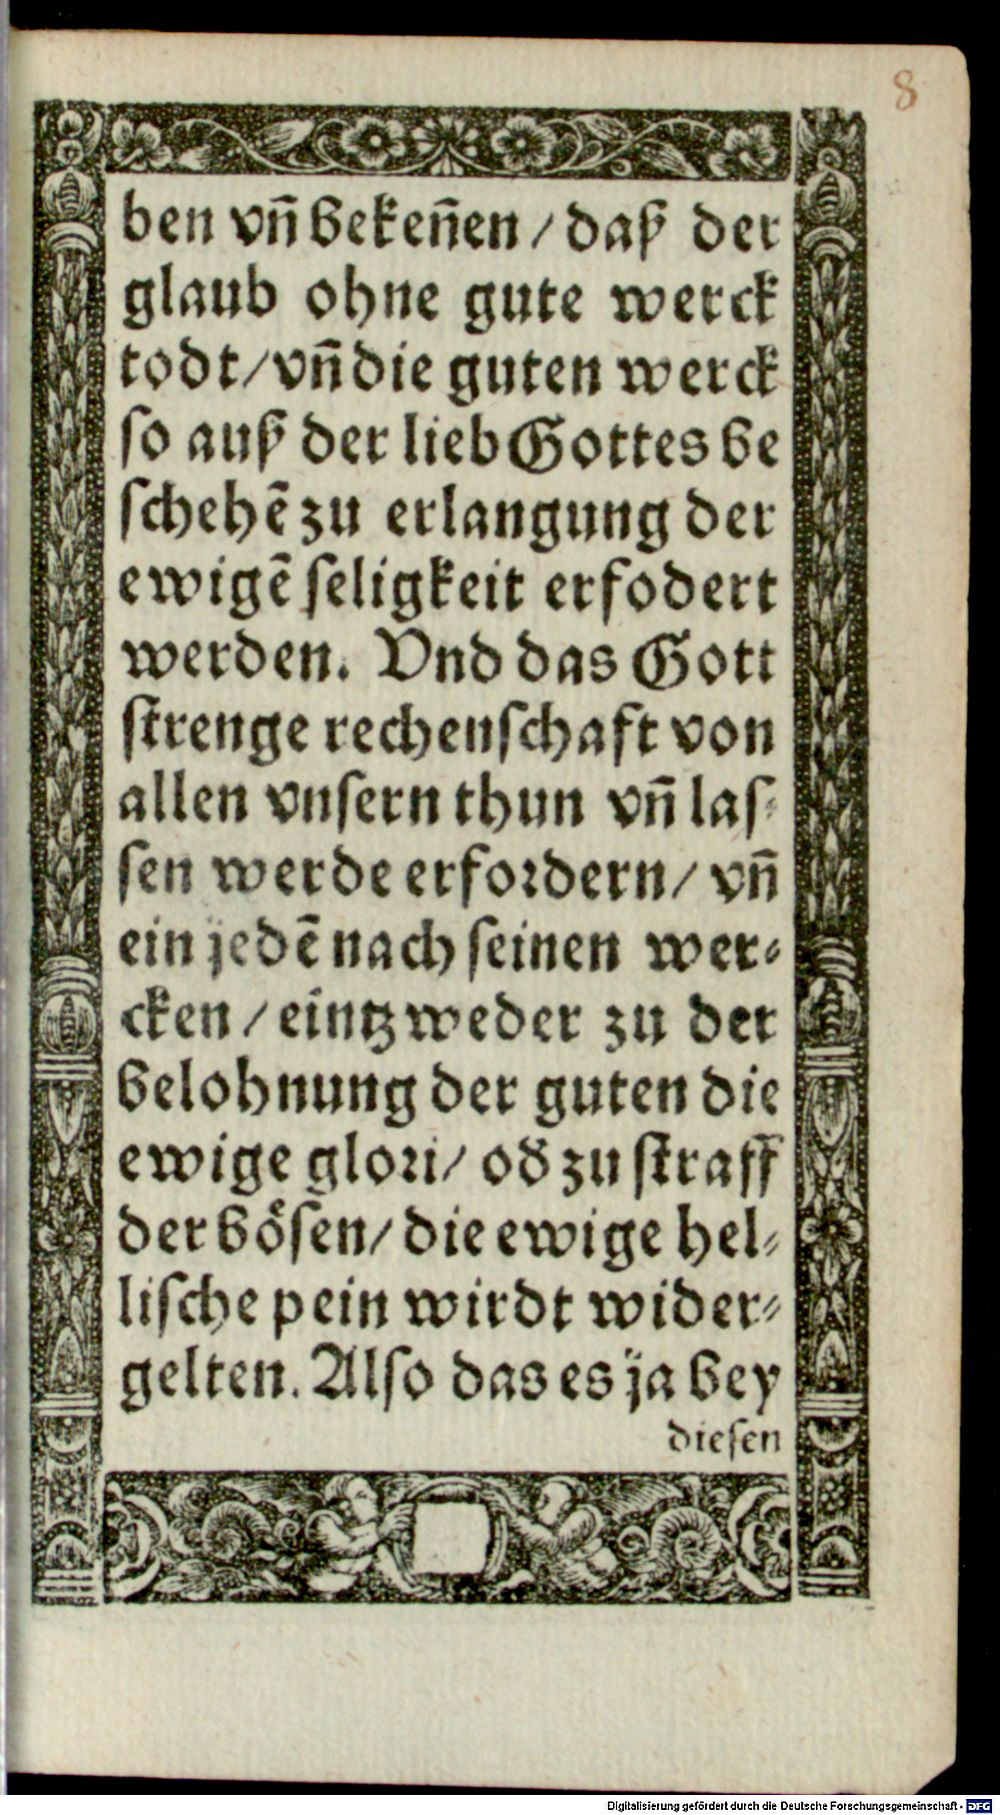 8
ben vñ bekeñen / daß der
glaub ohne gute werck
todt / vñ die guten werck
so auß der lieb Gottes be
schehẽ zu erlangung der
ewigẽ seligkeit erfodert
werden. Vnd das Gott
strenge rechenschaft von
allen vnsern thun vñ las⸗
sen werde erfordern / vñ
ein jedẽ nach seinen wer⸗
cken / eintzweder zu der
belohnung der guten die
ewige glori / od̕ zu straff
der bösen / die ewige hel⸗
lische pein wirdt wider⸗
gelten. Also das es ja bey
diesen
Digitalisierung gefördert durch die Deutsche Forschungsgemeinschaft - DFG